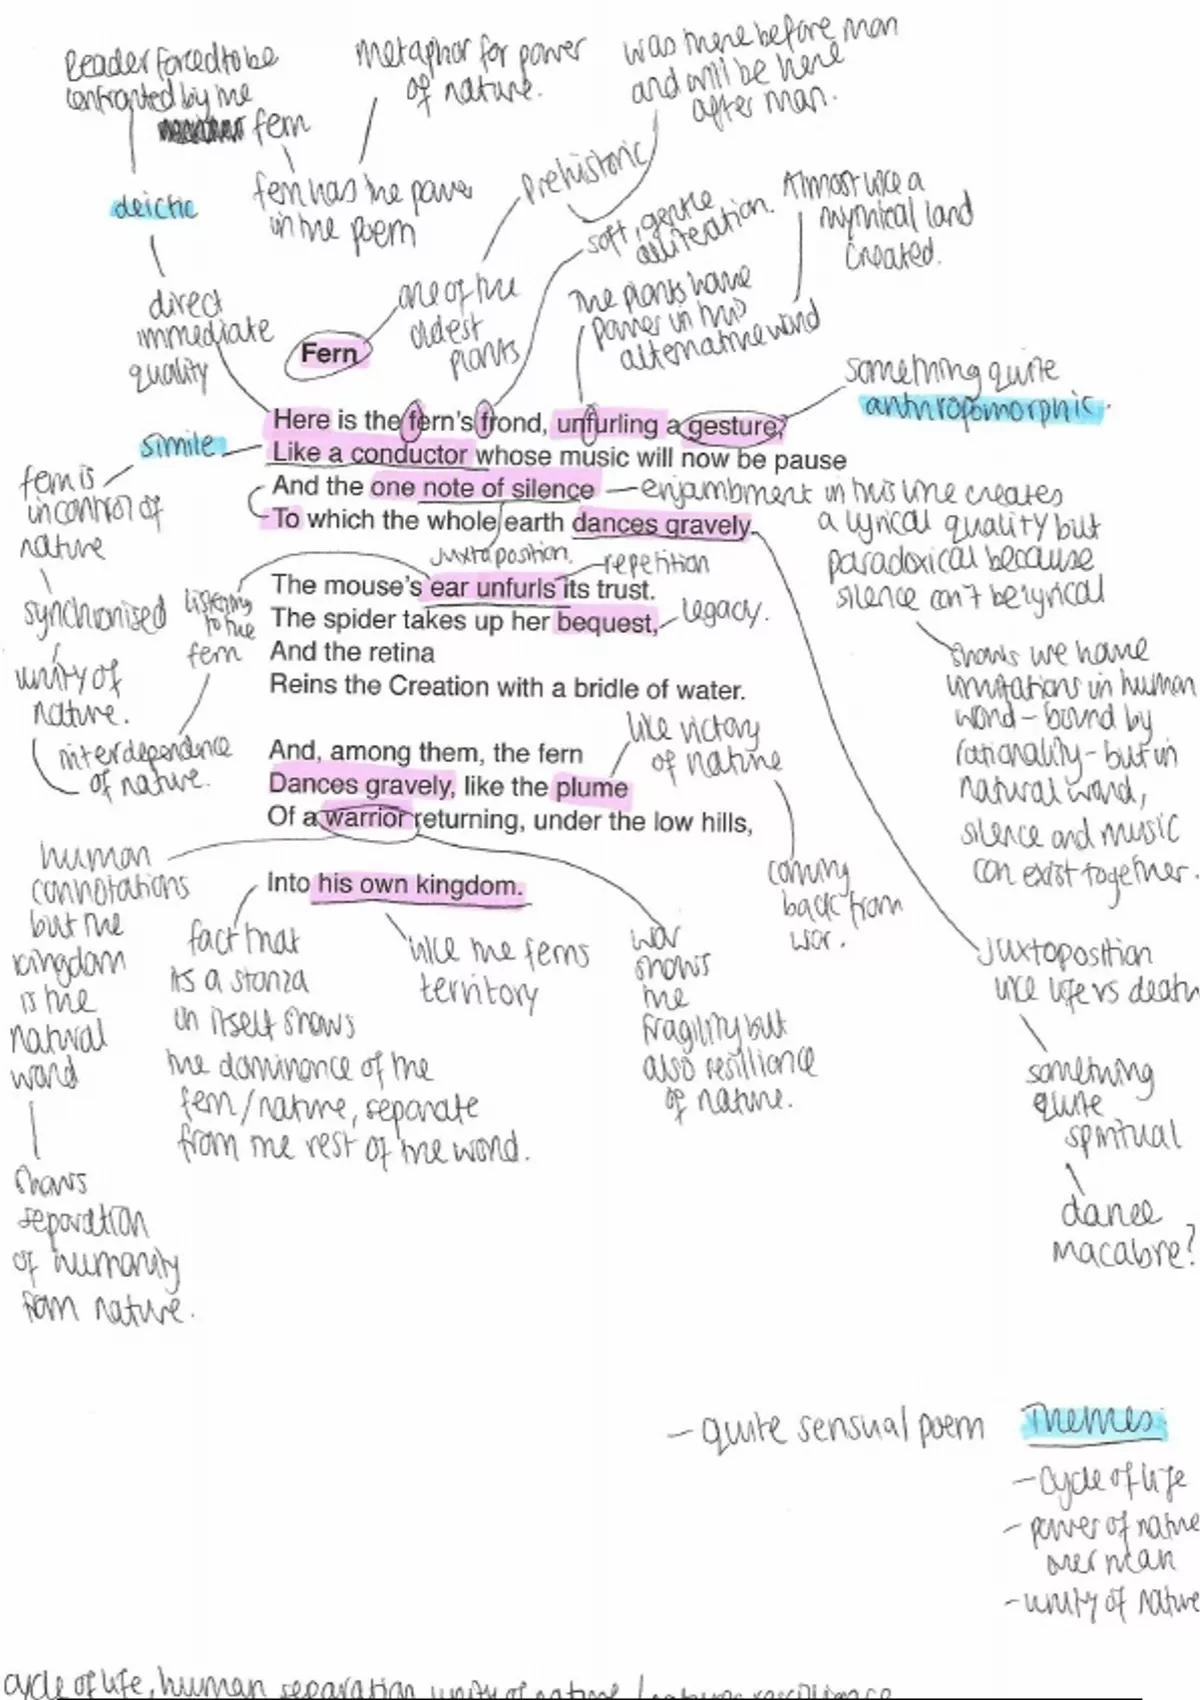 Reader forced to be
confronted by the
fern
metaphor for power
of nature.
was there before man
and will be here
after man.
deictic
fern has the power
in the poem
Prehistoric
soft, gentle
alliteration.
Almost like a
mythical land
created.
direct
immediate
quality
one of the
oldest
plants
The plants have
power in this
alternative world
Fern
something quite
anthropomorphic.
Here is the fern's frond, unfurling a gesture,
simile
Like a conductor whose music will now be pause
And the one note of silence
enjambment in this line creates
a lyrical quality but
paradoxical because
silence can't be lyrical
To which the whole earth dances gravely.
fern is
in control of
nature
juxtaposition.
repetition
The mouse's ear unfurls its trust.
synchronised
listening
to the
fern
The spider takes up her bequest,
legacy.
And the retina
Reins the Creation with a bridle of water.
unity of
nature.
interdependence
of nature.
shows we have
limitations in human
world - bound by
rationality - but in
natural world,
silence and music
can exist together.
like victory
of nature
And, among them, the fern
Dances gravely, like the plume
Of a warrior returning, under the low hills,
human
connotations
but the
kingdom
is the
natural
world
coming
back from
war.
Into his own kingdom.
fact that
its a stanza
in itself shows
the dominance of the
fern/nature, separate
from the rest of the world.
like the ferns
territory
war
shows
the
fragility but
also resilliance
of nature.
juxtaposition
like life vs death
something
quite
spiritual
dance
macabre?
shows
separation
of humanity
from nature.
- quite sensual poem
Themes.
- Cycle of life
- power of nature
over man
- unity of nature
cycle of life, human separation, unity of nature